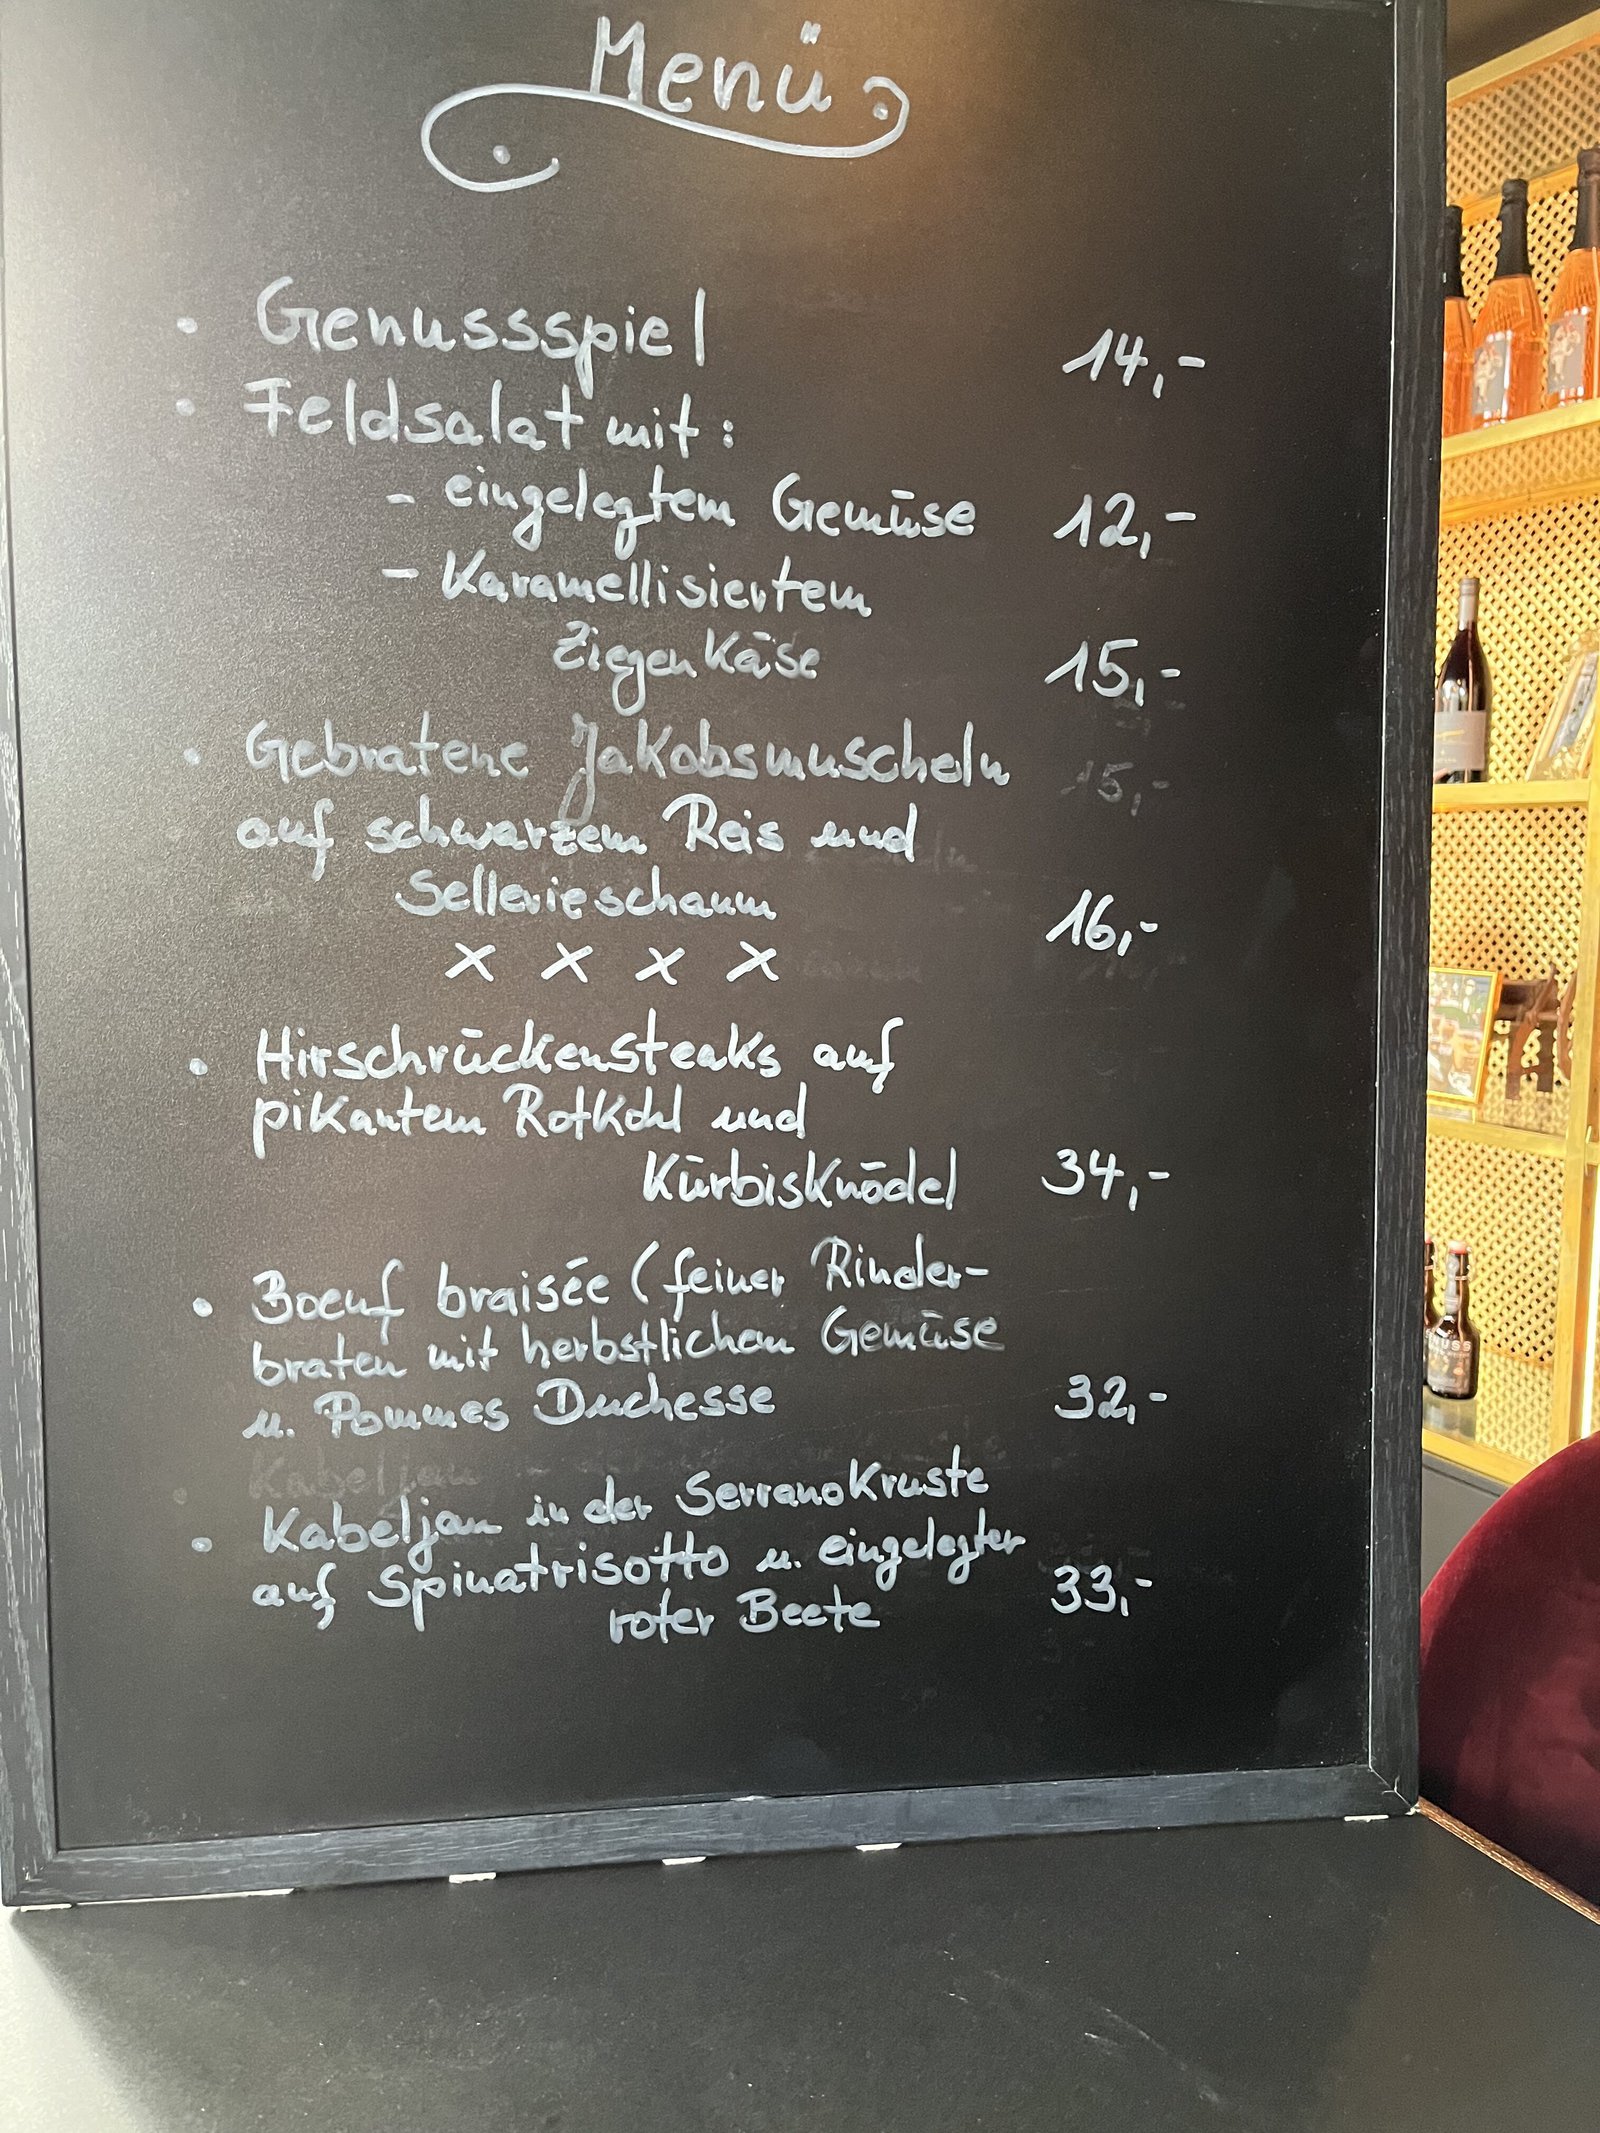 Menü
• Genussspiel 14,-
• Feldsalat mit:
- eingelegtem Gemüse 12,-
- Karamellisiertem
Ziegenkäse 15,-
• Gebratene Jakobsmuscheln 15,-
auf schwarzem Reis und
Sellerieschaum 16,-
x x x x
• Hirschrückensteaks auf
pikantem Rotkohl und
Kürbisknödel 34,-
• Boeuf braisée (feiner Rinder-
braten mit herbstlichem Gemüse
u. Pommes Duchesse 32,-
Kabeljau
• Kabeljau in der Serranokruste
auf Spinatrisotto u. eingelegter
roter Beete 33,-